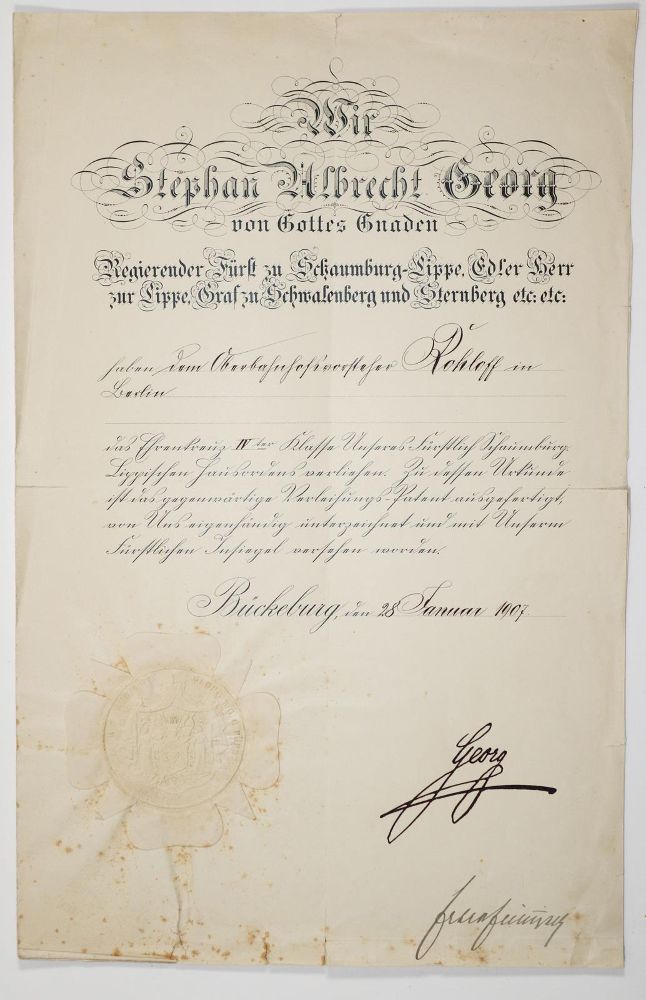 Wir
Stephan Albrecht Georg
von Gottes Gnaden
Regierender Fürst zu Schaumburg-Lippe, Edler Herr
zur Lippe, Graf zu Schwalenberg und Sternberg etc: etc:
haben dem Oberbahnhofsvorsteher Rohloff in
Berlin
das Ehrenkreuz IV ter Klasse Unseres Fürstlich Schaumburg-
Lippischen Hausordens verliehen. Zu dessen Urkunde
ist das gegenwärtige Verleihungs-Patent ausgefertigt,
von Uns eigenhändig unterzeichnet und mit Unserm
Fürstlichen Insiegel versehen worden.
Bückeburg, den 28 Januar 1907
Georg